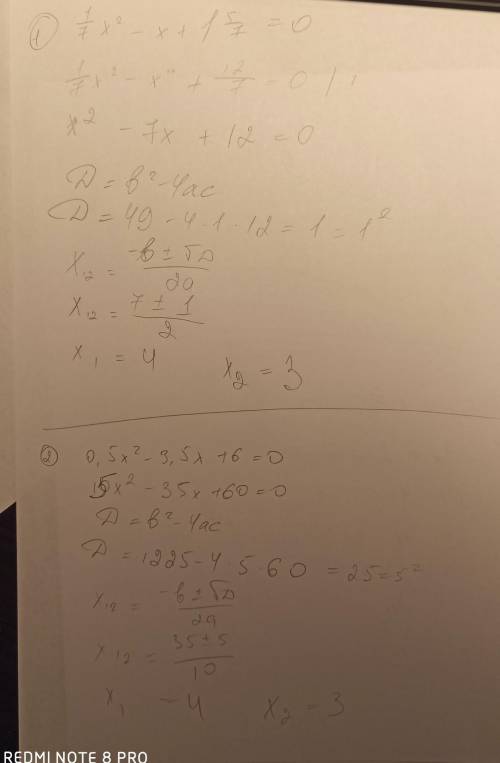 ① 1/7 x² - x + 1 5/7 = 0
1/7 x² - x + 12/7 = 0 /
x² - 7x + 12 = 0
D = b² - 4ac
D = 49 - 4 · 1 · 12 = 1 = 1²
x₁₂ = -b ± √D / 2a
x₁₂ = 7 ± 1 / 2
x₁ = 4 x₂ = 3
② 0,5x² - 3,5x + 6 = 0
5x² - 35x + 60 = 0
D = b² - 4ac
D = 1225 - 4 · 5 · 60 = 25 = 5²
x₁₂ = -b ± √D / 2a
x₁₂ = 35 ± 5 / 10
x₁ - 4 x₂ - 3
REDMI NOTE 8 PRO